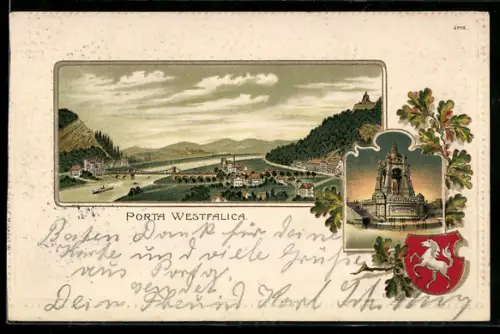 2708.
PORTA WESTFALICA
Besten Dank für deine
Karte und viele Grüße
aus Porta
sendet
Dein Freund Karl